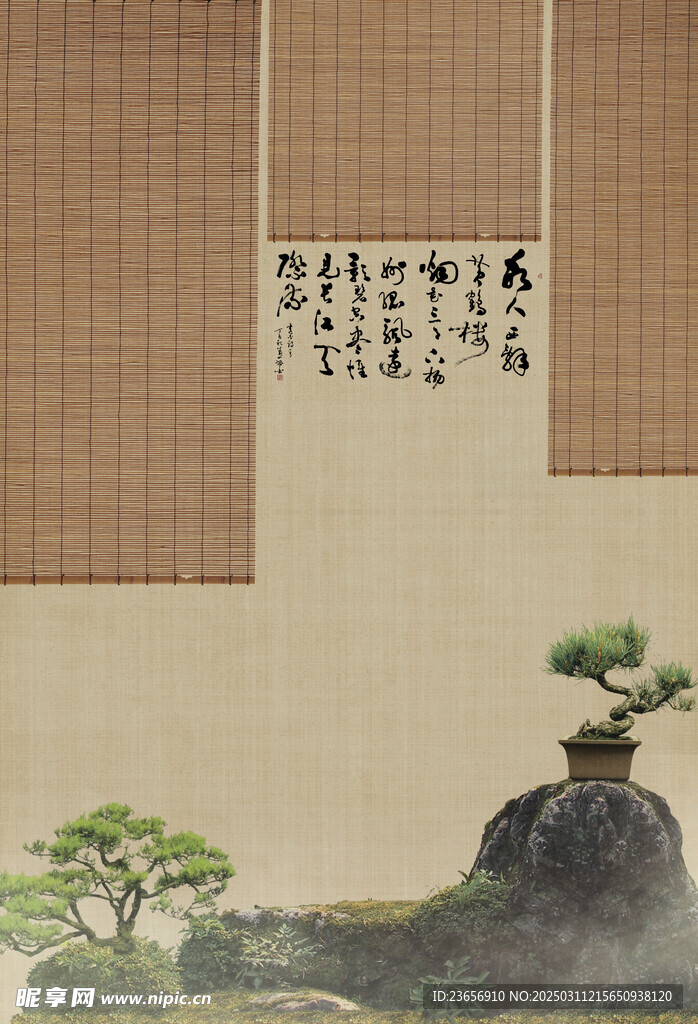 故人西辭
黄鶴楼
烟花三月下揚
州孤帆遠
影碧空尽惟
見长江天
際流
昵享网 www.nipic.cn
ID:23656910 NO:20250311215650938120